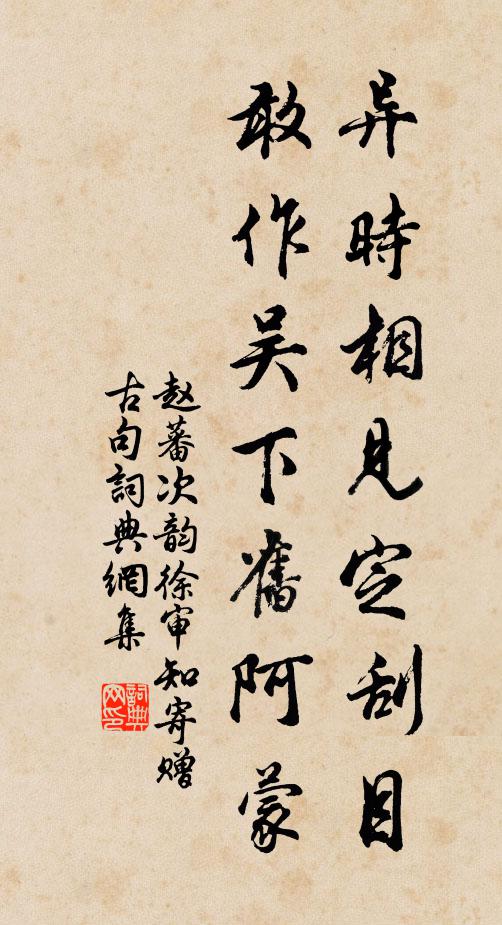 异時相見定刮目
敢作吴下舊阿蒙
赵蕃次韵徐审知寄赠
古句詞典網集
詞典
网印